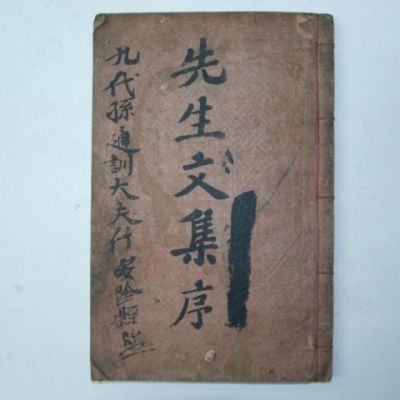 先生文集序
九代孫通訓大夫行安陰縣監